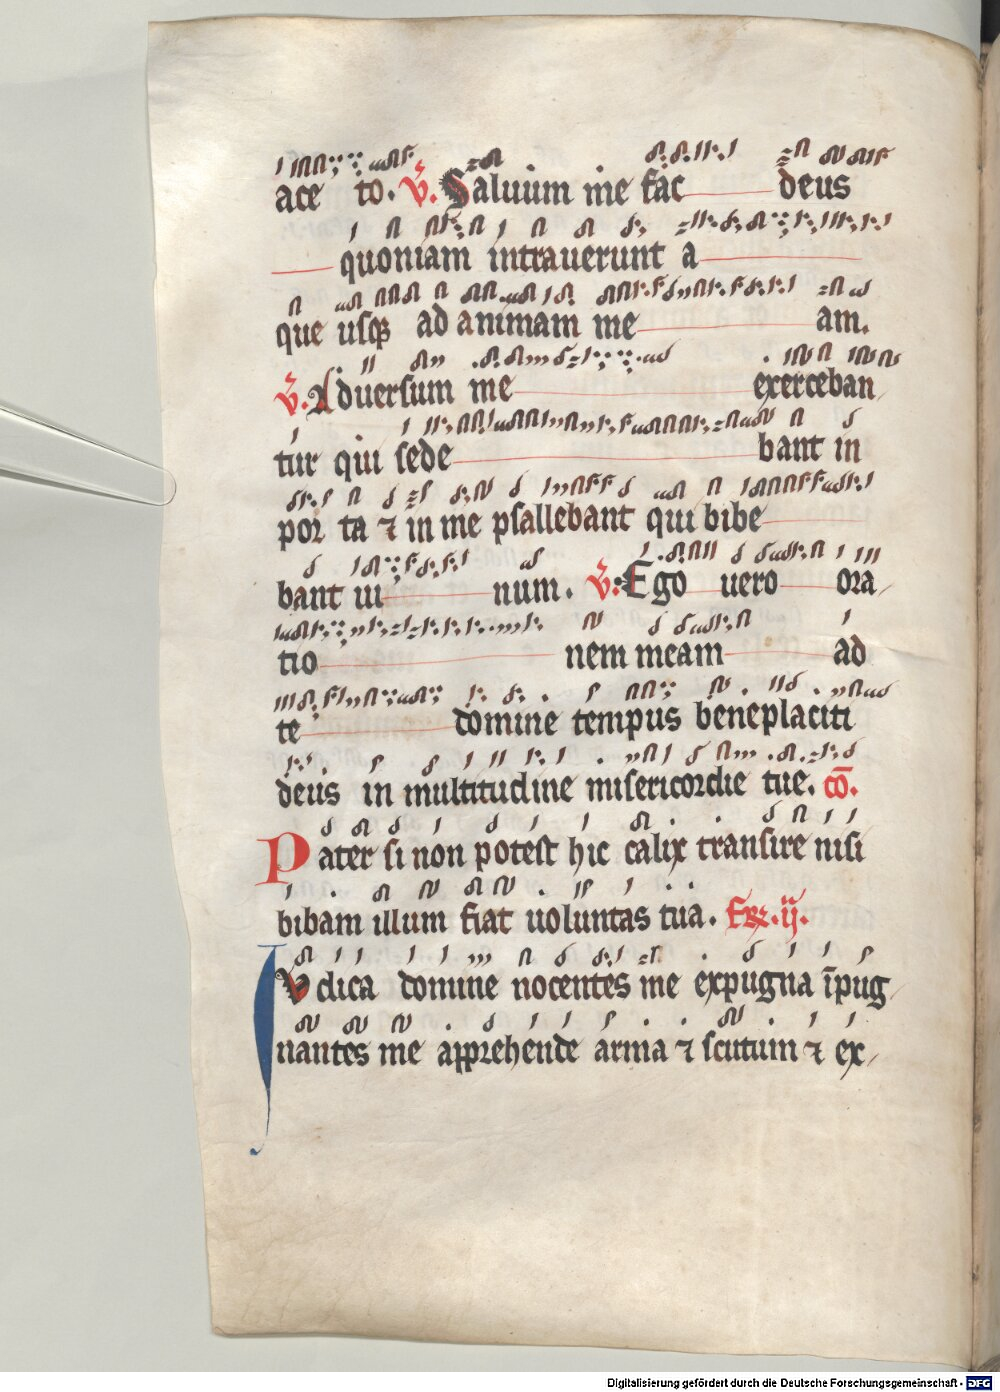 ace to. V̄. Saluum me fac deus
quoniam intrauerunt a
que usqꝫ ad animam me am.
V̄. Aduersum me exerceban
tur qui sede bant in
por ta ⁊ in me psallebant qui bibe
bant ui num. V̄. Ego uero ora
tio nem meam ad
te domine tempus beneplaciti
deus in multitudine misericordie tue. cō.
Pater si non potest hic calix transire nisi
bibam illum fiat uoluntas tua. Fer. ij.
Iudica domine nocentes me expugna īpug
nantes me apprehende arma ⁊ scutum ⁊ ex
Digitalisierung gefördert durch die Deutsche Forschungsgemeinschaft - DFG